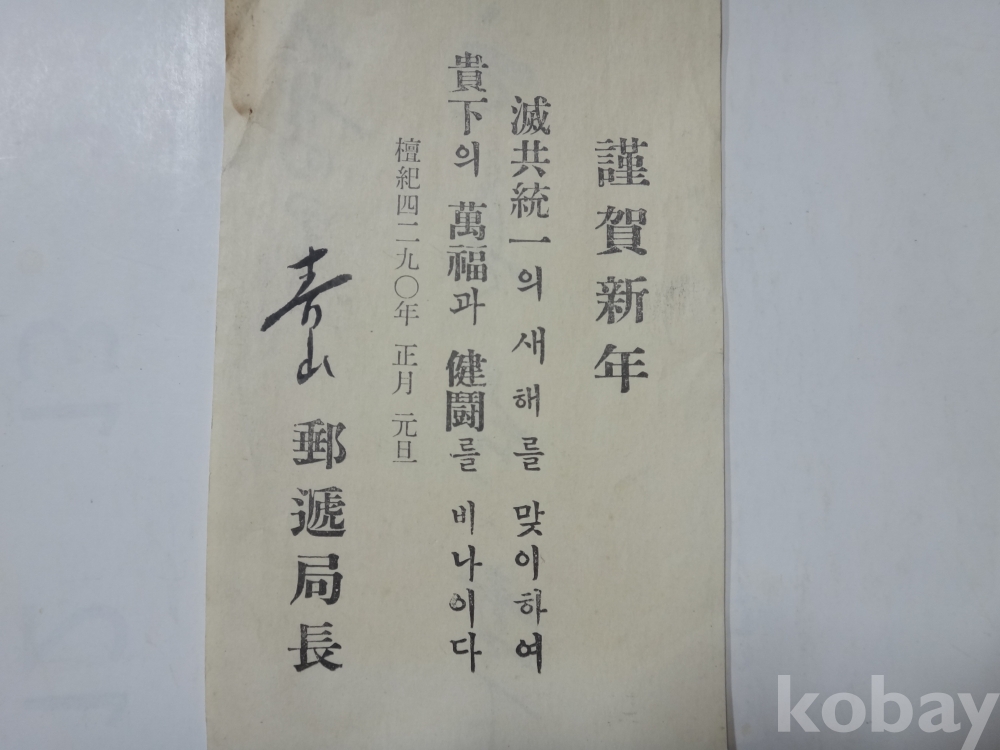 謹賀新年
滅共統一의 새해를 맞이하여
貴下의 萬福과 健闘를 비나이다
檀紀四二九〇年 正月 元旦
青山 郵遞局長
kobay